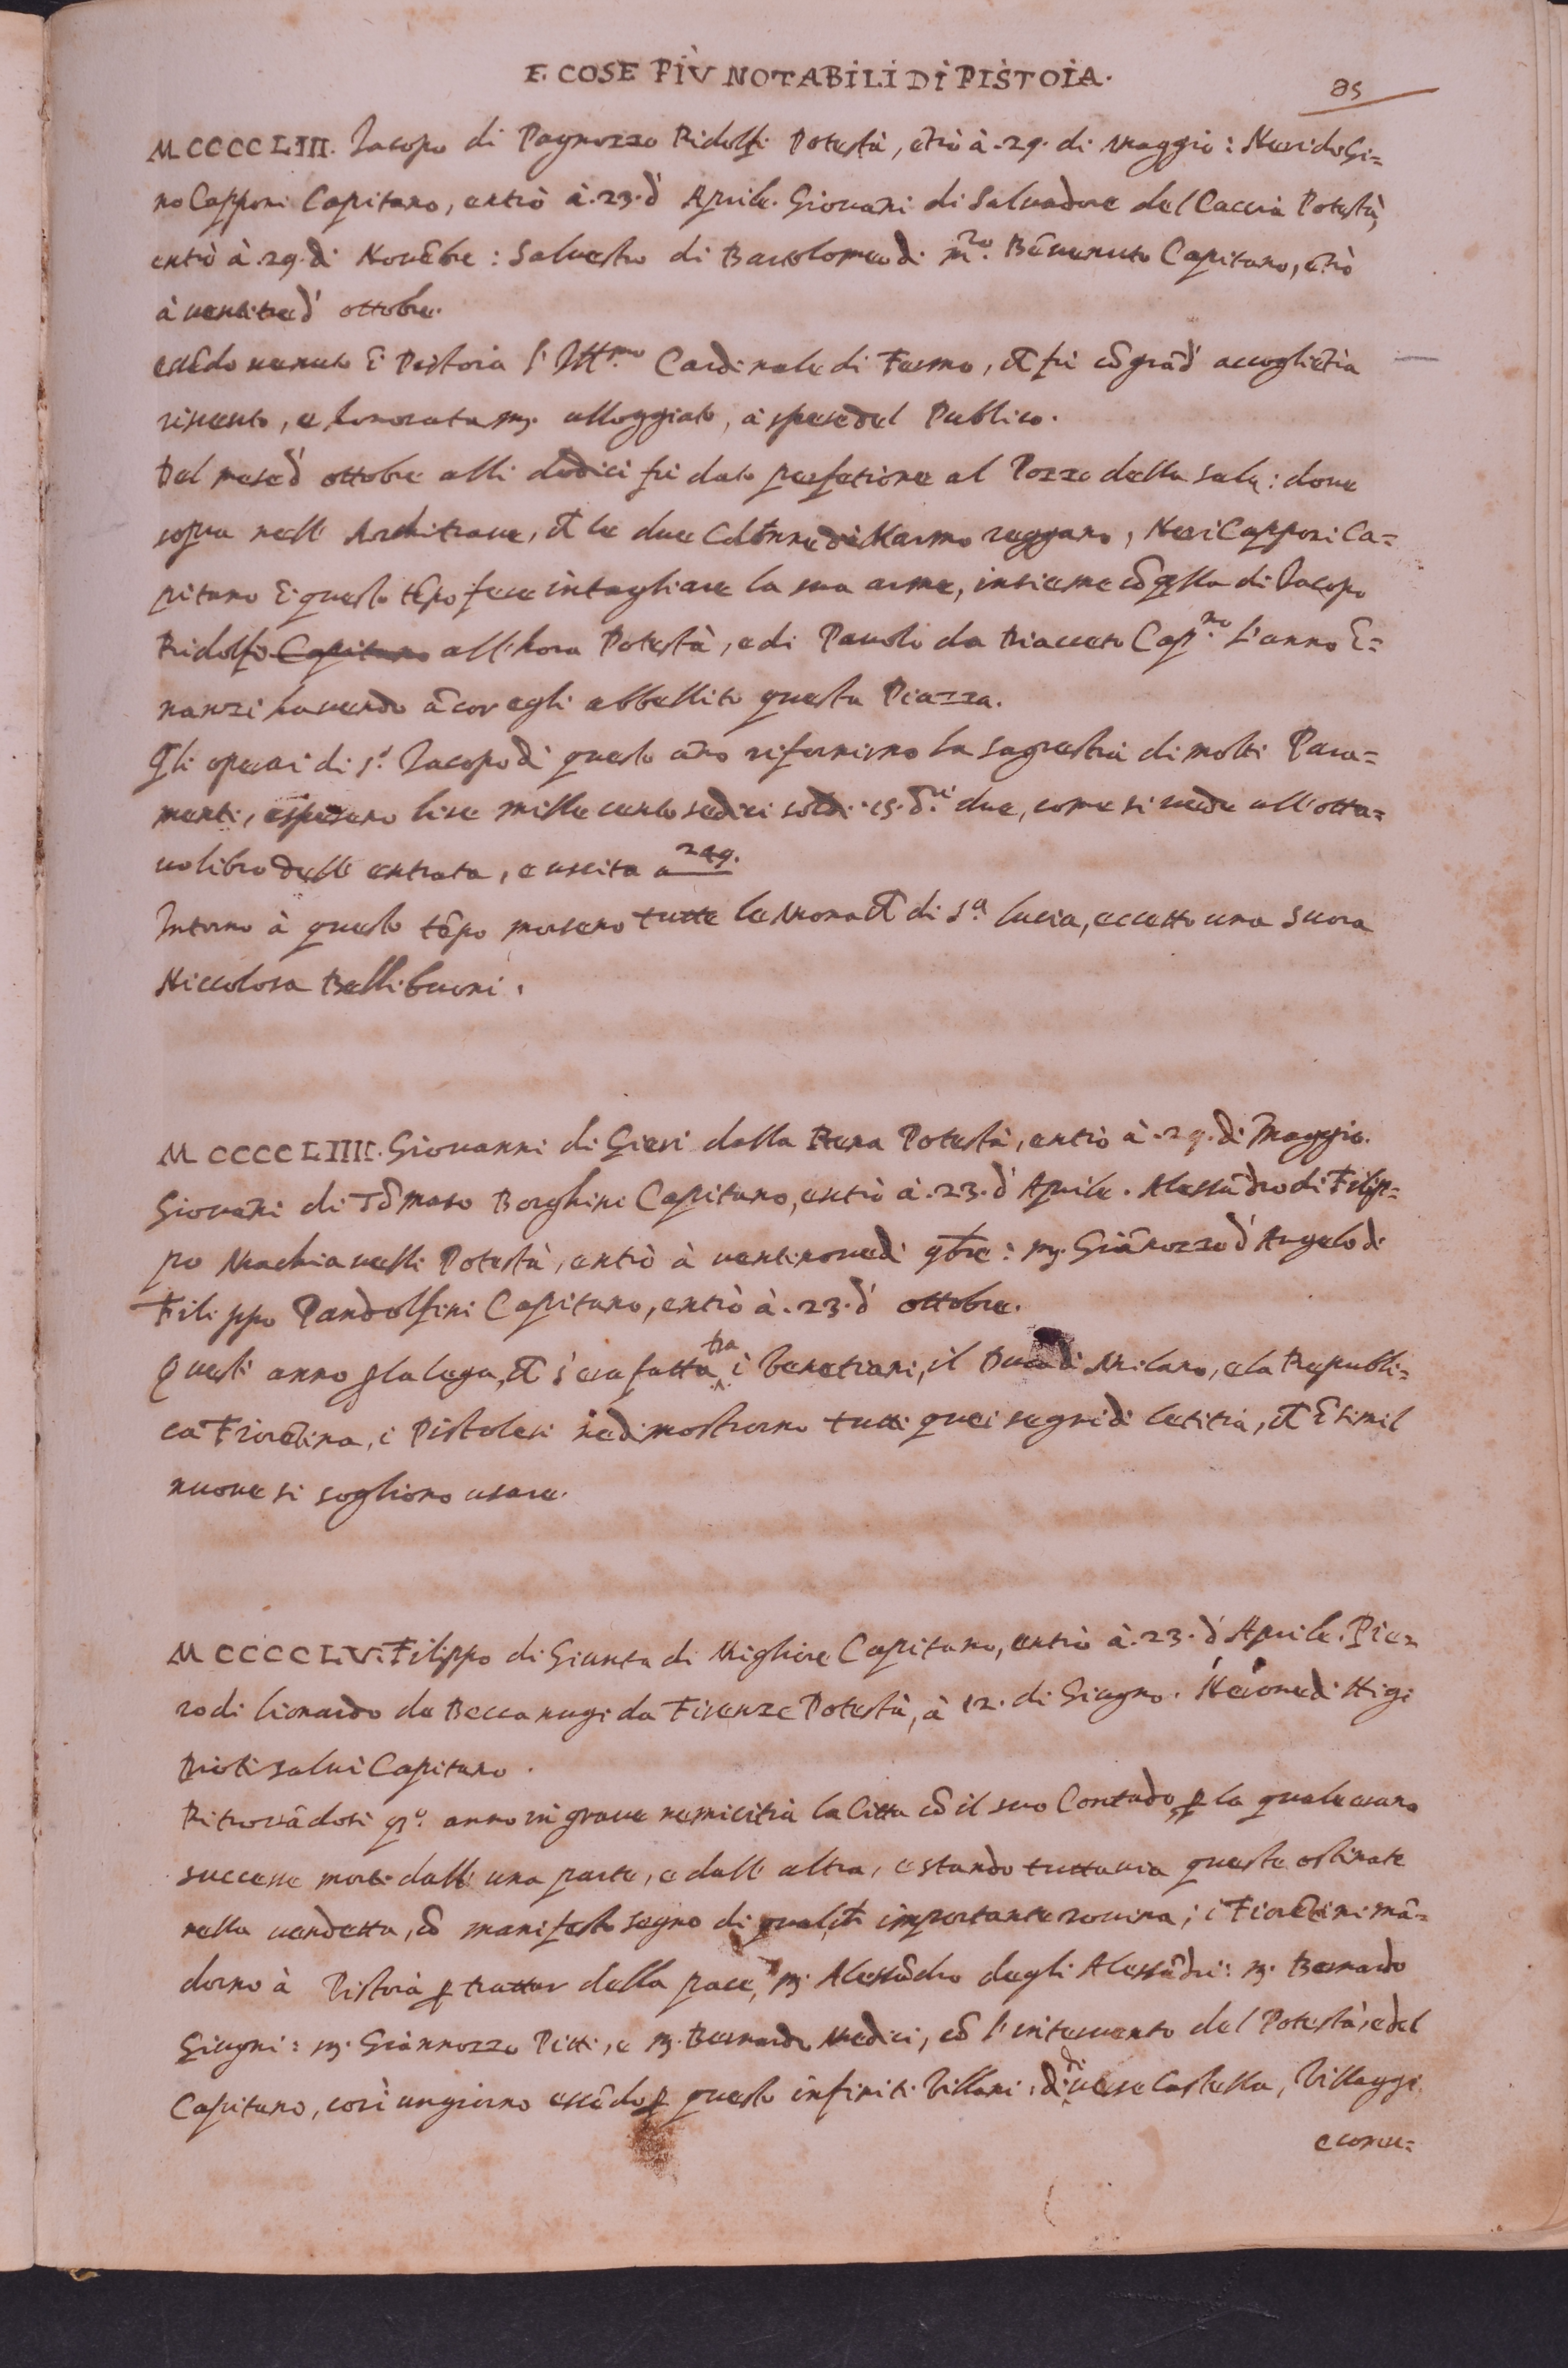 E COSE PIÙ NOTABILI DI PISTOIA.
85
MCCCCLIII. Iacopo di Pagnozzo Ridolfi Potestà, ẽtrò à .29. di Maggio: Neri di Gi=
no Capponi Capitano, entrò à .23. d' Aprile. Giovañi di Salvadore del Caccia Potestà,
entrò à .29. di Novẽbre: Salvestro di Bartolomeo di m.ro Bẽvenuto Capitano, ẽtrò
à ventitre d' ottobre.
essẽdo venuto ĩ Pistoia l' Ill.mo Cardinale di Fermo, cħ fù cõ grãd' accogliẽtia
ricevuto, e honorata m. alloggiato, à spese del Publico.
Del mese d' ottobre alli dodici fù dato perfetione al Pozzo della sala: dove
sopra nell' Architrave, cħ le due Colonne di Marmo reggano, Neri Capponi Ca=
pitano ĩ questo tẽpo fece intagliare la sua arme, insieme cõ q̃lla di Iacopo
Ridolfi Capitano all' hora Potestà, e di Pauolo da Diacceto Cap.no l' anno ĩ=
nanzi havendo ãcor egli abbellito questa Piazza.
Gli operai di s.º Iacopo di questo año rifornirno la sagrestia di molti Para=
menti, e spesano lire mille cento sedici soldi 15. d.ri due, come si vede all' otta=
vo libro dell' entrata, e uscita a 249.
Intorno à questo tẽpo morseno tutte le Monacħ di S.ª Lucia, eccetto una Suora
Niccolosa Bellibuoni.
MCCCCLIIII. Giovanni di Gieri della Rena Potestà, entrò à .29. di Maggio.
Giovañi di Tõmaso Borghini Capitano, entrò à .23. d' Aprile. Alessãdro di Filip=
po Machiavelli Potestà, entrò à ventinove di 9bre: m. Giãnozzo d' Angelo di
Filippo Pandolfini Capitano, entrò à .23. d' ottobre.
Quest' anno p la lega, cħ s' era fatta tra i Venetiani, il Duca di Milano, e la Republi=
ca Fiorẽtina, i Pistolesi ne dimostrorno tutti quei segni di letitia, cħ ĩ simil
nuove si sogliono usare.
MCCCCLV. Filippo di Giunta di Migliore Capitano, entrò à .23. d' Aprile. Pie=
ro di Lionardo da Beccanugi da Firenze Potestà, à 12. di Giugno. di
Capitano.
Ritrovãdosi q.º anno in grave nemicitia la Città cõ il suo Contado, p la quale erano
successe morti dall' una parte, e dall' altra, e stando tuttavia queste ostinate
nella vendetta, cõ manifesto segno di qualcħ importante rovina; i Fiorẽtini mã=
dorno à Pistoia p trattar della pace, m. Alessãdro degli Alessãdri: m. Bernardo
Giugni: m. Giannozzo Pitti, e m. Bernardo Medici, cõ l' intervento del Potestà, e del
Capitano, così un giorno essẽdo p questo infiniti Villani, di diverse Castella, Villaggi,
e comu=